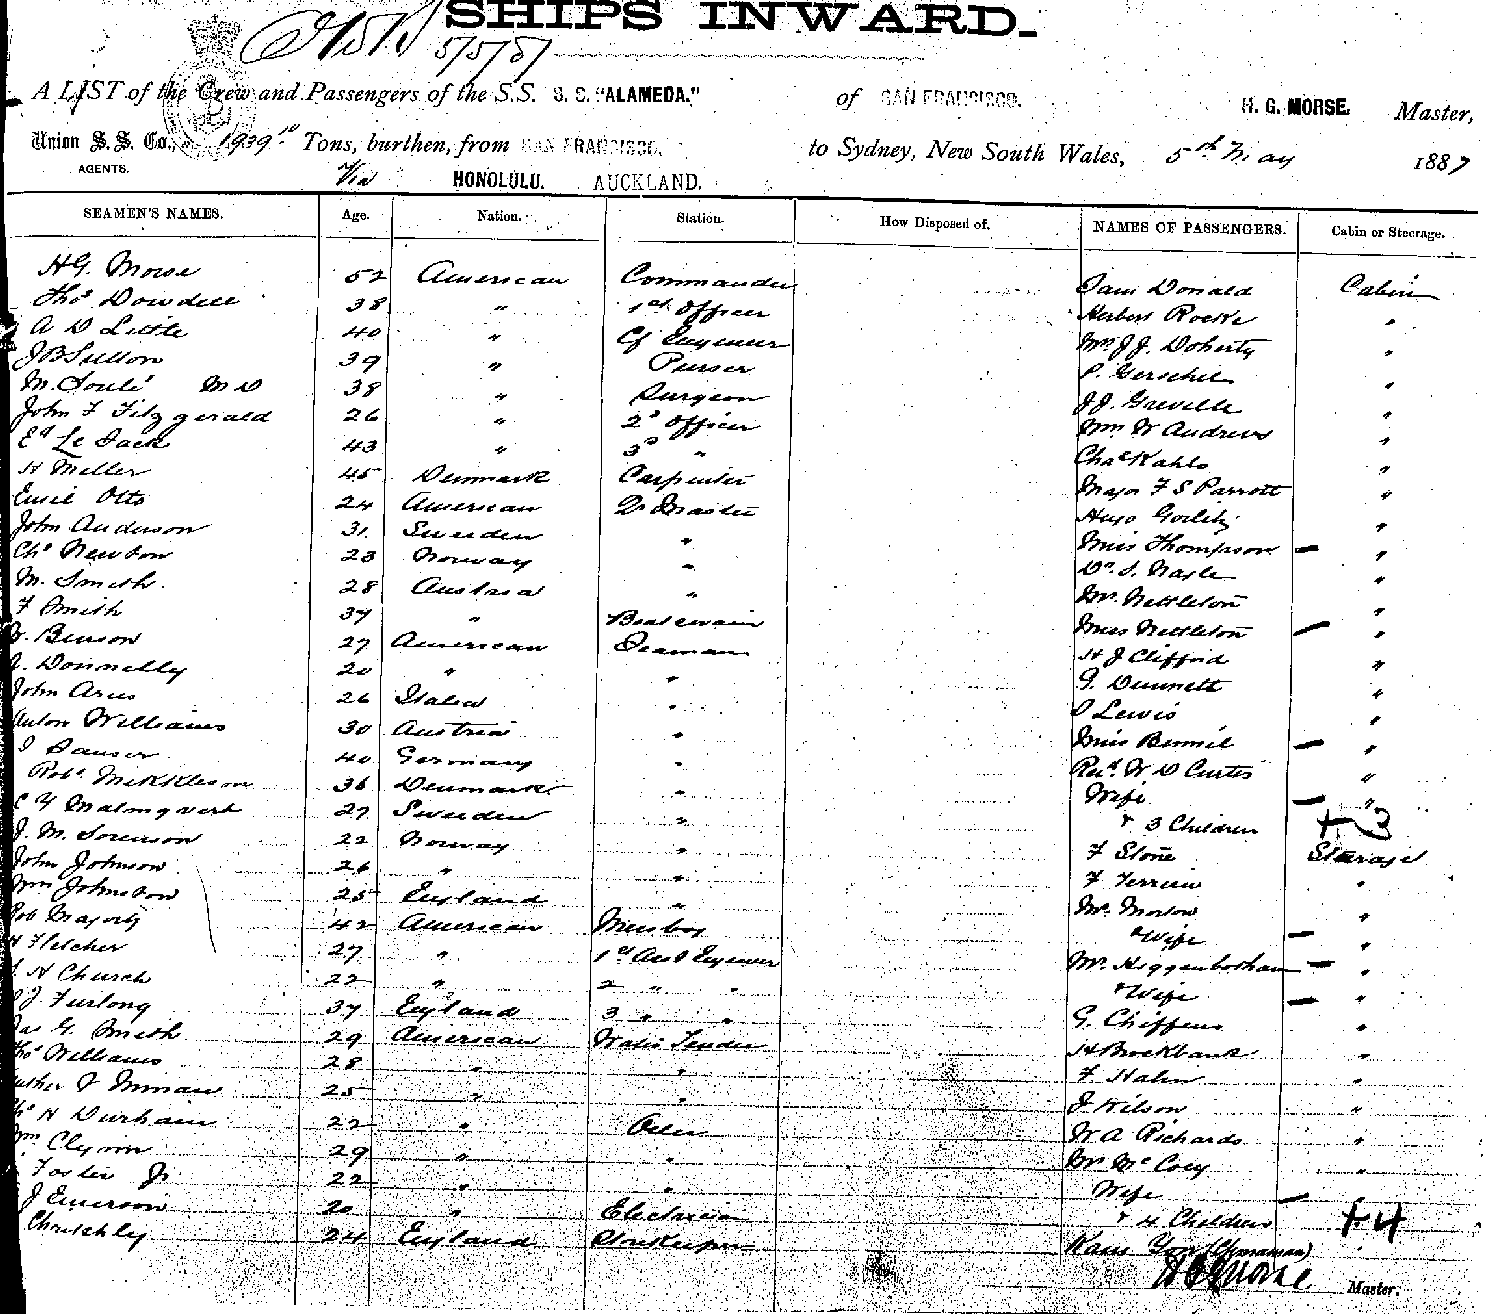 SHIPS INWARD.
5/5/87
A LIST of the Crew and Passengers of the S.S. S. S. "ALAMEDA." of SAN FRANCISCO. H. G. MORSE. Master,
Union S. S. Co., 1939 Tons, burthen, from SAN FRANCISCO. to Sydney, New South Wales, 5th May 1887
AGENTS. Via HONOLULU. AUCKLAND.
SEAMEN'S NAMES. Age. Nation. Station. How Disposed of. NAMES OF PASSENGERS. Cabin or Steerage.
H G. Morse 52 American Commander Sam Donald Cabin
Thos Dowdell 38 " 1st Officer Herbert Rocke "
A D Little 40 " Cf Engineer Mr J J. Doherty "
J B Sutton 39 " Purser P. Herschel "
M. Soulé M D 38 " Surgeon J J. Greville "
John F Fitzgerald 26 " 2d Officer Wm W Andrews "
Ed Le Sack 43 " 3d " Chas Kahlo "
H Miller 45 Denmark Carpenter Major F S Parrott "
Emil Otto 24 American Qr Master Hugo "
John Anderson 31. Sweden " Miss Thompson "
Chs Newton 23 Norway " Dr. S. Nagle "
M. Smith. 28 Austria " Mr. Nettleton "
F Smith 37 " Boatswain Miss Nettleton "
Benson 27 American Seaman H J Clifford "
J. Donnelly 20 " " G. Dunnett "
John 26 Italia " S Lewis "
Anton Williams 30 Austria " Miss "
40 Germany " Revd. W D Curtis "
Robt Mikkleson 36 Denmark " Wife "
Malmqvert 27 Sweden " & 3 Children + 3
J. M. Sorenson 22 Norway " F Stone Steerage
John Johnson 26 " " F "
Wm Johnston 25 England " Mr. Morlow "
42 American Messboy & Wife "
H Fletcher 27 " 1st Asst Engineer Mr. Higgenbotham "
H Church 22 " 2 " " & Wife "
J. Furlong 37 England 3 " " G. Chiffens "
Jas G. Smith 29 American Water Tender H Brockbank "
Thos Williams 28 " " F Hahn "
25 " " J. Wilson "
Chs H Durham 22 " Oiler W A Richards "
Wm 29 " " Mr McCoey "
Foster Jr 22 " " Wife
J Emerson 20 " Electrician & 4 Children + 4
24 England Storekeeper (Chinaman)
H G Morse Master.